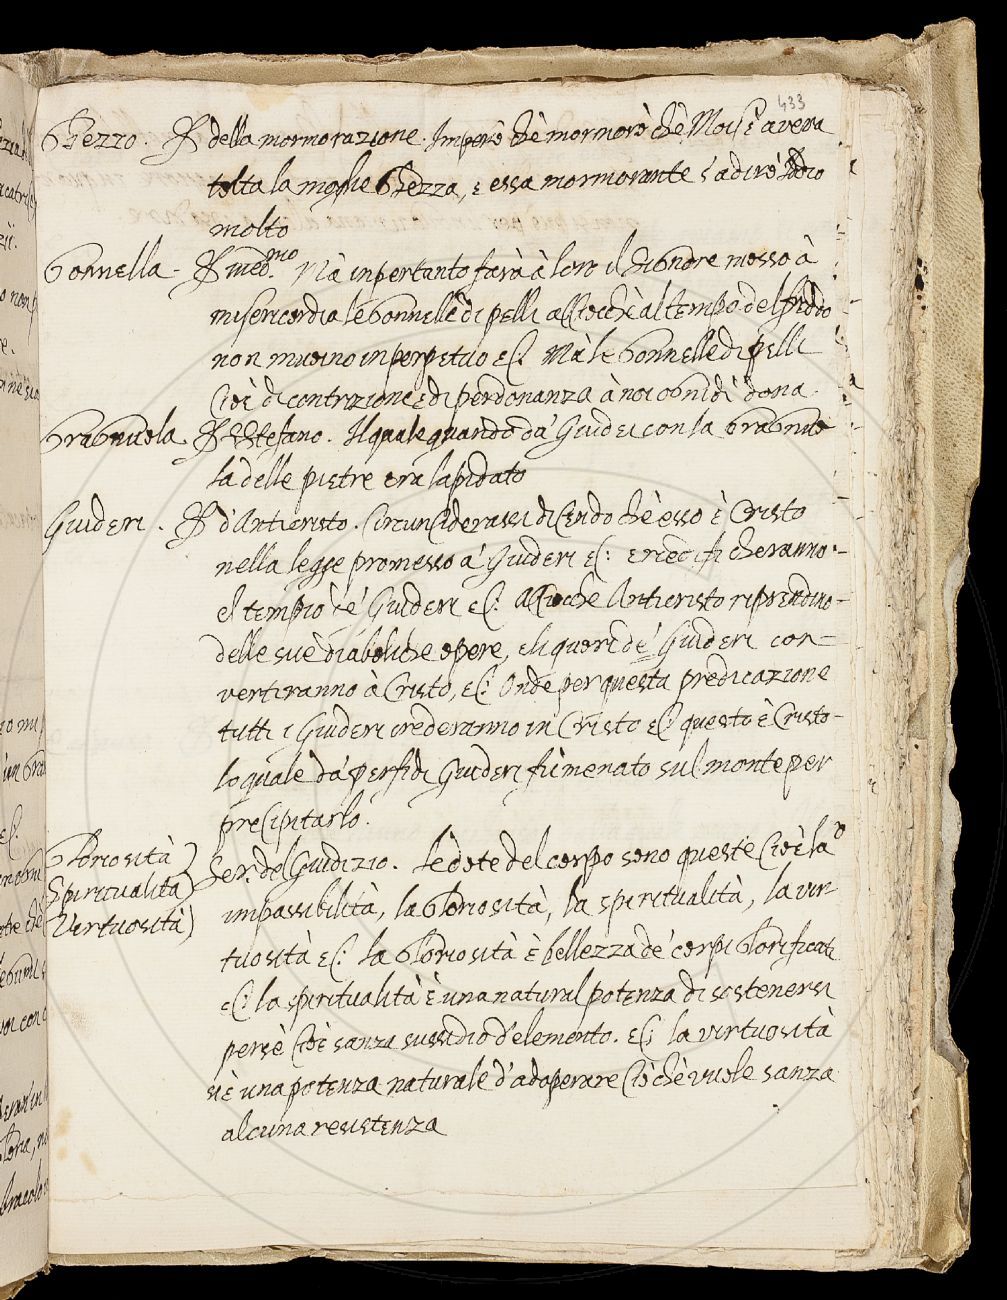 433
Ghezzo. della mormorazione. Imperò chè mormorò chè Moisè aveva
tolta la moglie Ghezza, e essa mormorante s'adirò Iddio
molto
Gonnella. med.mo Mà inpertanto farà à loro il Signore mosso à
misericordia le Gonnelle di pelli acciocchè al tempo del freddo
non muoino in perpetuo ec: Mà le Gonnelle di pelli
cioè di contrizione e di perdonanza à noi ognidì dona.
Gragnuola. S Stefano. Il quale quando da' Giudei con la Gragnuo
la delle pietre era lapidato
Giuderi. d'Anticristo. Circunciderassi dicendo chè esso è Cristo
nella legge promesso a' Giuderi ec: e riedificheranno
el tempio i Giuderi ec: Acciochè Anticristo riprendino
delle sue diaboliche opere, e li quori de' Giuderi con=
vertiranno à Cristo, ec: Onde per questa predicazione
tutti i Giuderi crederanno in Cristo ec: questo è Cristo
lo quale da' perfidi Giuderi fù menato sul monte per
precipitarlo.
Gloriosità
Spiritualità
Virtuosità
Ser. del Giudizio. Le dote del corpo sono queste cioè la
impassibilità, la Gloriosità, la spiritualità, la vir
tuosità ec: la Gloriosità è bellezza de' corpi Glorificati
ec: la spiritualità è una natural potenza di sostenersi
persè cioè sanza sussidio d'elemento. ec: la virtuosità
si è una potenza naturale d'adoperare ciò chè vuole sanza
alcuna resistenza